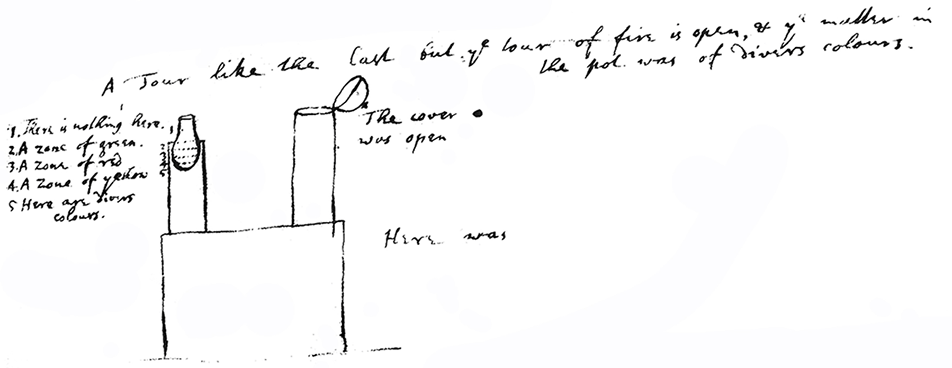 A Tour like the last but yᵉ tour of fire is open, & yᵉ matter in
the pot was of divers colours.
1. There is nothing here.
2. A zone of green.
3. A zone of red
4. A zone of yellow
5 Here are divers
colours.
1
2
3
4
5
The cover
was open
Here was